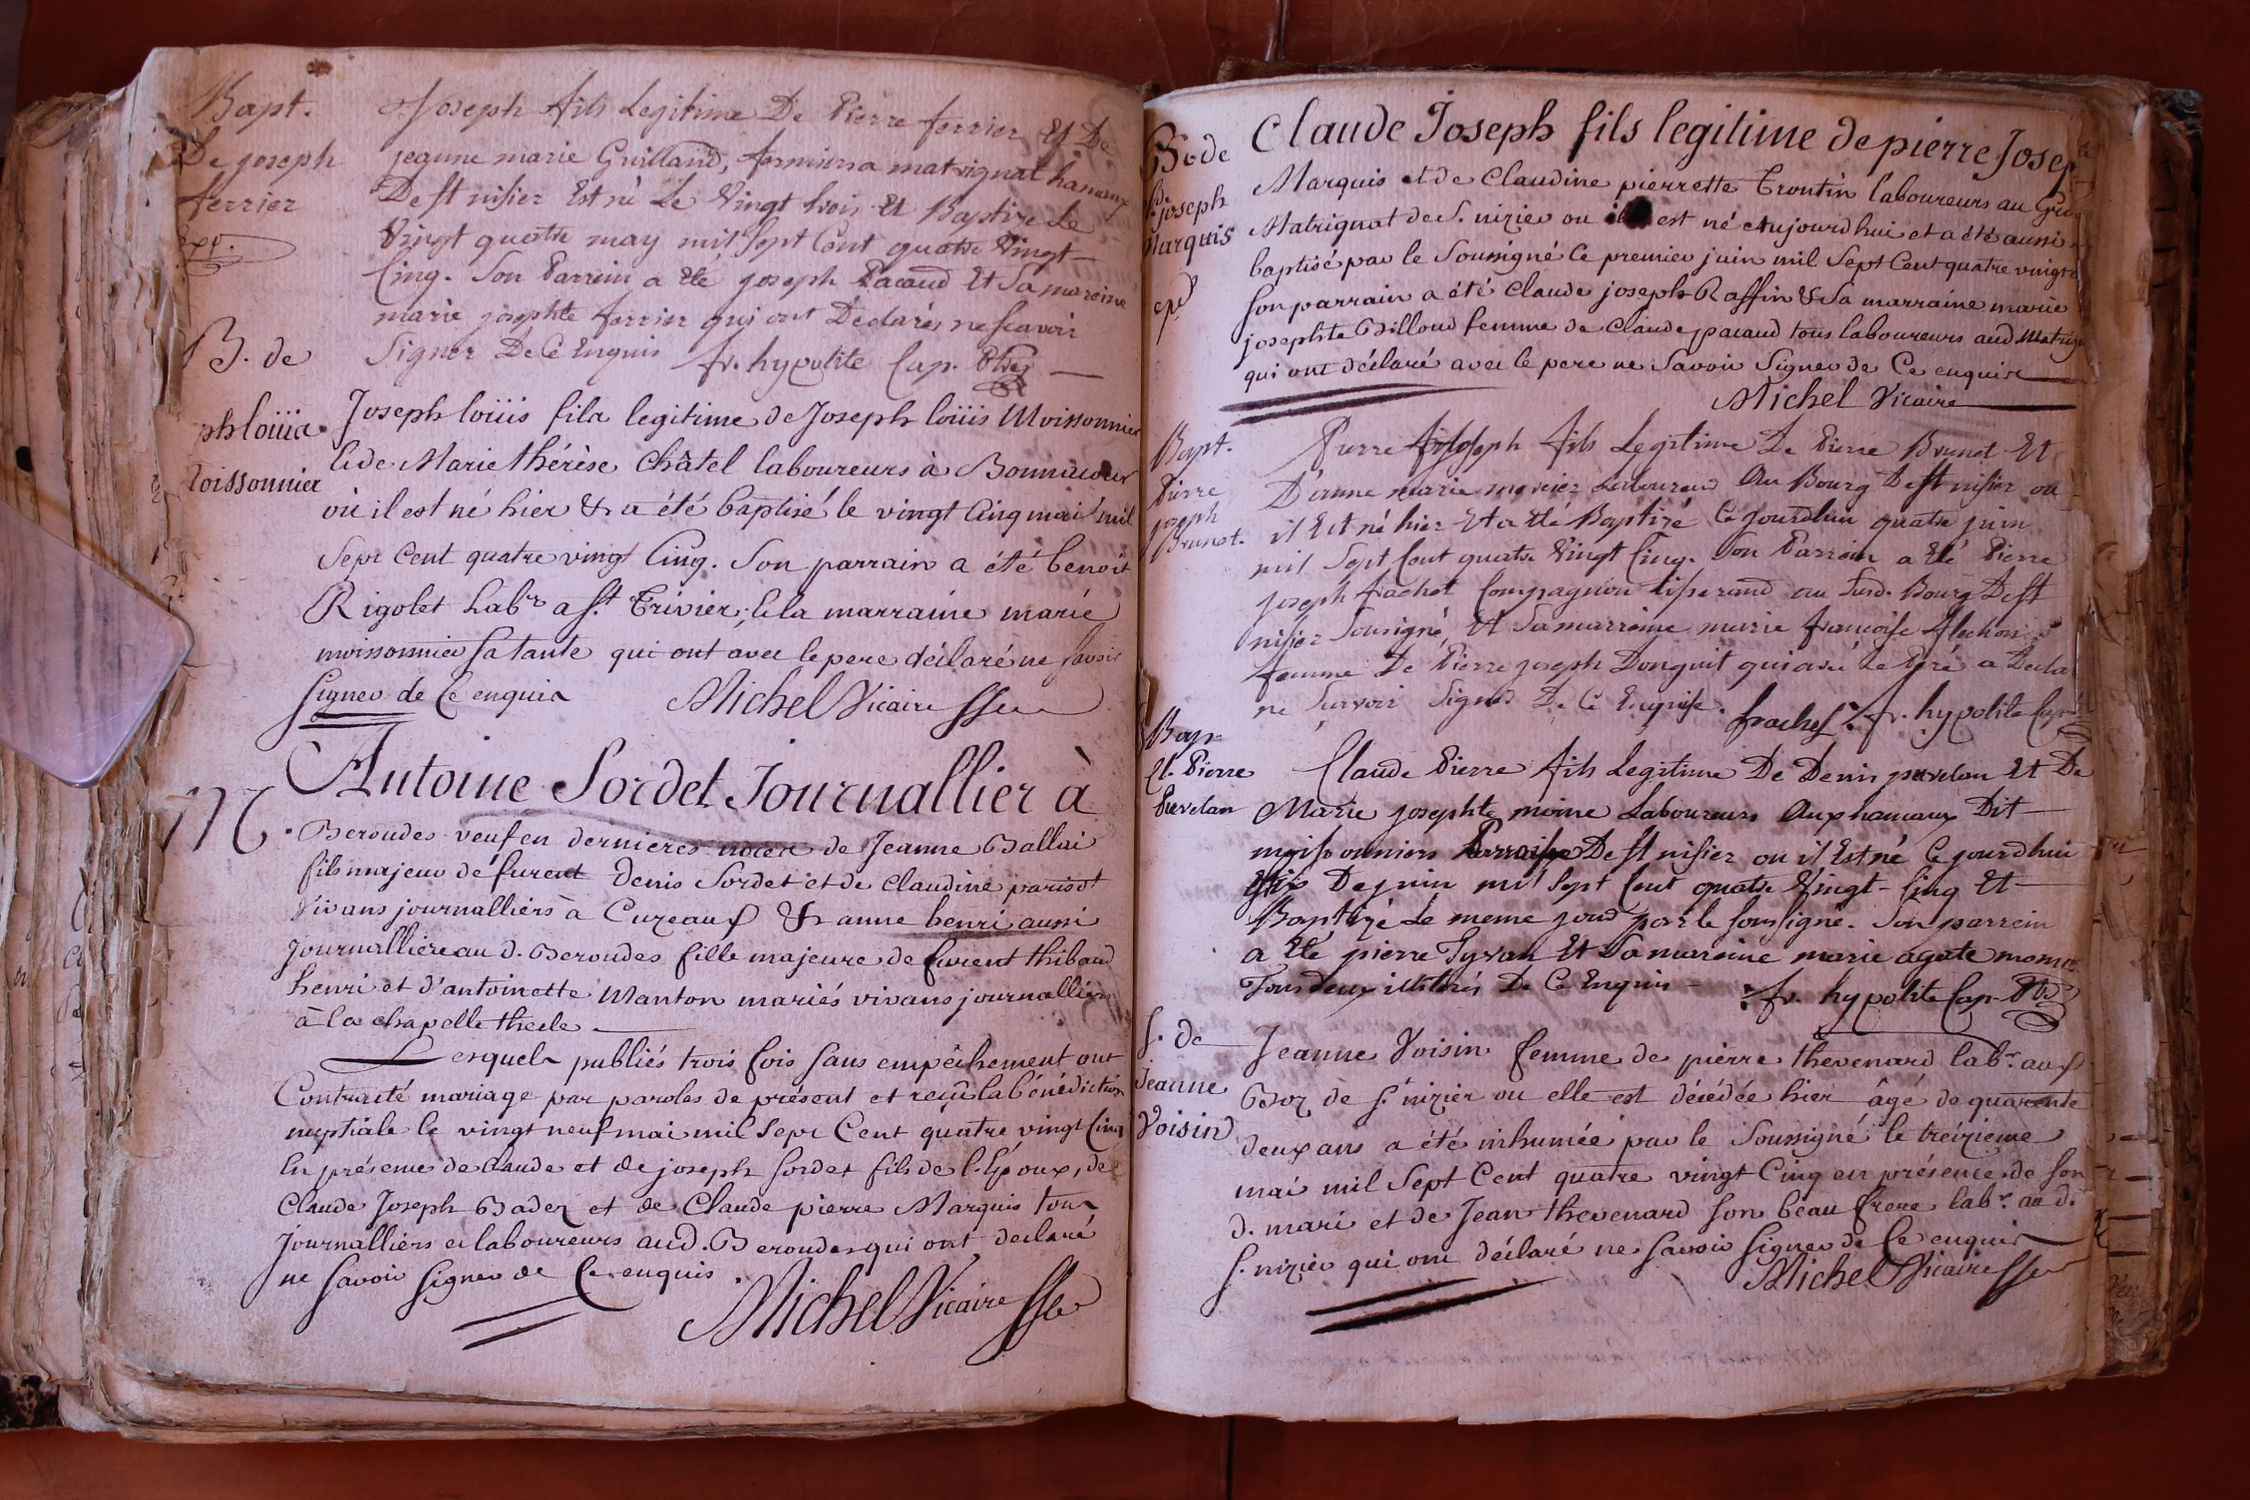 Bapt.
De joseph
ferrier
exp.
Joseph fils Legitime De Pierre ferrier Et De
jeanne marie Guilland, fermiers a matrignat hameaux
De st nisier Est né Le Vingt trois Et Baptise Le
Vingt quatre may mil sept Cent quatre Vingt
Cinq. Son Parrein a Eté joseph Pacaud Et Sa mareine
marie josephte ferrier qui ont Declarés ne scavoir
Signer De Ce Enquis fr. hypolite Cap.
B. de
ph loüis
Moissonnier
Joseph loüis fils legitime de Joseph loüis Moissonnier
& de Marie thérèse Châtel laboureurs à
où il est né hier & a été baptisé le vingt Cinq mai mil
Sept Cent quatre vingt Cinq. Son parrain a été benoît
Rigolet Labr. a St. Trivier, & la marraine marie
moissonnier sa tante qui ont avec le pere déclaré ne savoir
signer de Ce enquis Michel Vicaire
M.
Antoine Sordet Journallier à
Beroudes veuf en dernieres noces de Jeanne Ballai
fils majeur de furent Denis Sordet et de Claudine parisot
Vivans journalliers à Cuzeaux & anne henri aussi
Journalliere au d. Beroudes fille majeure de furent thibaud
henri et d'antoinette Manton mariés vivans journalliers
à la chapelle thecle
Lesquels publiés trois fois sans empêchement ont
Contracté mariage par paroles de présent et reçu la bénédiction
nuptiale le vingt neuf mai mil Sept Cent quatre vingt Cinq
En présence de claude et de joseph Sordet fils de l'Epoux, de
Claude Joseph Badez et de Claude pierre Marquis tous
Journalliers et laboureurs aud. Beroudes qui ont declaré
ne savoir signer de Ce enquis.
Michel Vicaire
B. de
Cl. de
joseph
Marquis
exp
Claude Joseph fils legitime de pierre Josep
Marquis et de Claudine pierrette Trontin laboureurs au
Matrignat de S. nizier ou il est né aujourd hui et a été aussi
baptisé par le Soussigné Ce premier juin mil Sept Cent quatre vingt
Son parrain a été Claude joseph Raffin & Sa marraine marie
josephte Billoud femme de Claude pacaud tous laboureurs aud Matrig
qui ont déclaré avec le pere ne Savoir Signer de Ce enquis
Michel Vicaire
Bapt.
Pierre
joseph
Brunet.
Pierre joseph fils Legitime De Pierre Brunet Et
D'anne marie mercier Laboureurs Au Bourg De st nisier ou
il Est né hier Et a Eté Baptizé Ce jourdhui quatre juin
mil Sept Cent quatre Vingt Cinq. Son Parrein a Eté Pierre
joseph frachet Compagnion tisserand au Susd. Bourg De st
nisier Sousigné, Et Sa marreine marie françoise
femme De Pierre joseph Donguit qui avec Le Peré a Decla
ne Scavoir Signer De Ce Enquise. frachet. fr. hypolite Cap
Bap
Cl. Pierre
Pavelan
Claude Pierre fils Legitime De Denis pavelan Et De
Marie josephte moine Laboureurs Aux hameaux Dit
moissonniers Parroisse De st nisier ou il Est né Ce jourdhui
six De juin mil Sept Cent quatre Vingt-Cinq Et
Baptizé Le meme jour par le Sousigné. Son parrein
a Eté pierre Tyvan Et Sa mareine marie agate
Tous deux illitérés De Ce Enquis fr. hypolite Cap.
S. de
Jeanne
Voisin
Jeanne Voisin femme de pierre thevenard labr. aux
Boz de S. nizier ou elle est décédée hier âgé de quarente
deux ans a été inhumée par le Soussigné le treizieme
mai mil Sept Cent quatre vingt Cinq en présence de son
d. mari et de Jean thevenard son beau frere labr. au d.
S. nizier qui ont déclaré ne savoir signer de Ce enquis
Michel Vicaire